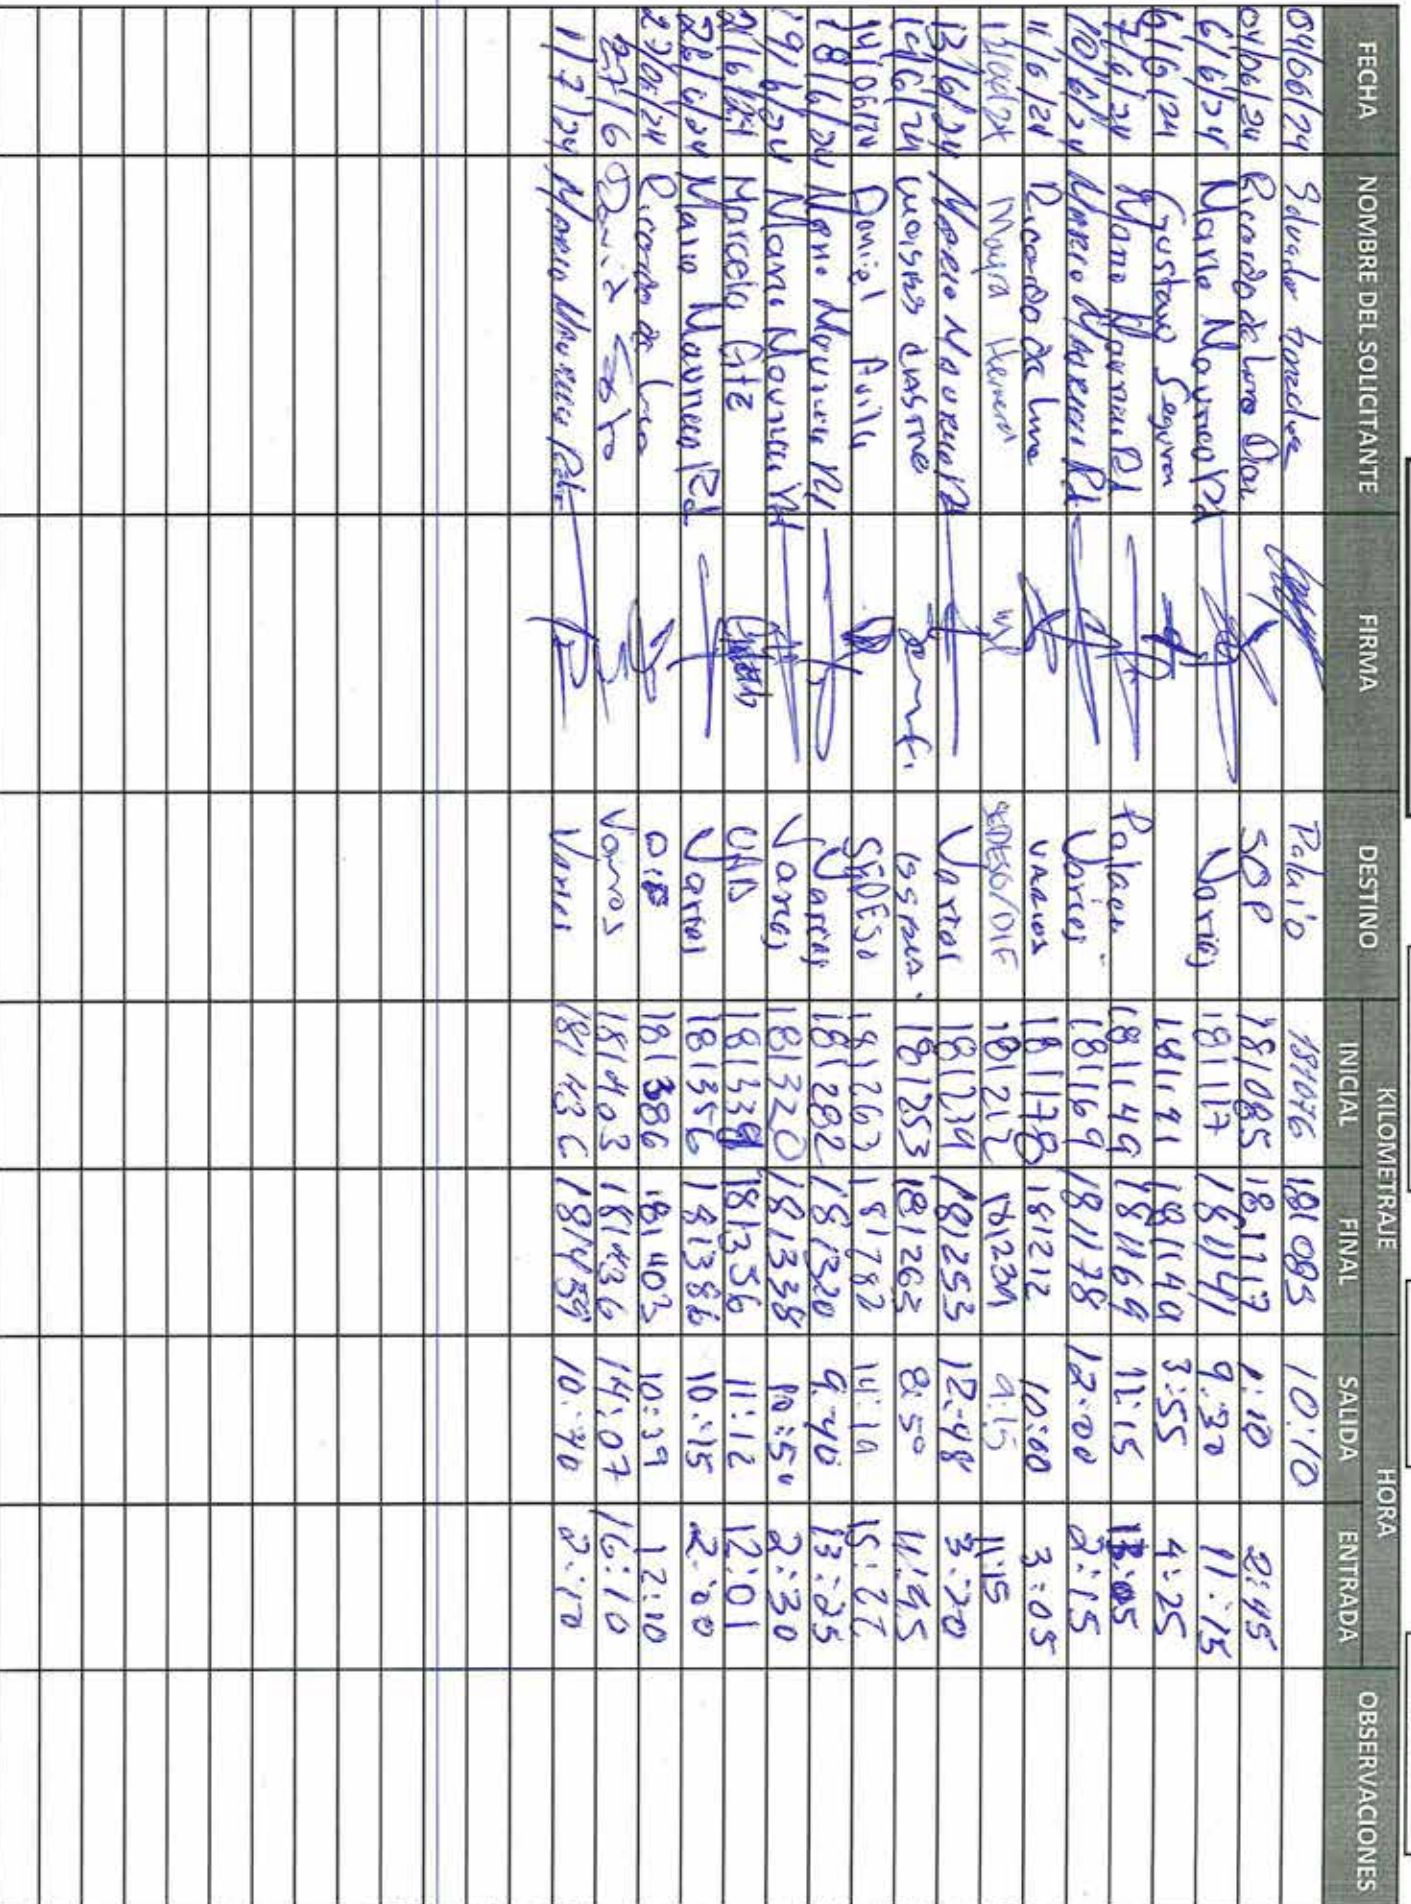 FECHA NOMBRE DEL SOLICITANTE FIRMA DESTINO KILOMETRAJE HORA OBSERVACIONES
INICIAL FINAL SALIDA ENTRADA
04/06/24 Salvador 181076 181085 10:10
04/06/24 Ricardo de Luna Diaz SOP 181085 181117 1:10 2:45
6/6/24 Mario Mauricio Rd Varios 181117 181141 9:30 11:15
6/6/24 Gustavo Segovia 181141 181149 3:55 4:25
7/6/24 Mario Mauricio Rd Palacio 181149 181169 11:15 13:05
10/6/24 Mario Mauricio Rd. Varios 181169 181178 12:00 2:15
11/6/24 Ricardo de Luna VARIOS 181178 181212 10:00 3:05
13/06/24 Mayra Herrera SEDESO/DIF 181212 181239 9:15 11:15
13/6/24 Mario Mauricio Rd Varios 181239 181253 12:48 3:20
14/6/24 181253 181263 8:50 11:45
14/06/24 Daniel Avila SEDESO 181263 181282 14:19
18/6/24 Mario Mauricio Rd Varios 181282 181320 9:40 13:25
19/6/24 Mario Mauricio Rd Varios 181320 181338 10:50 2:30
21/6/24 Marcela Gtz 181338 181356 11:12 12:01
26/6/24 Mario Mauricio Rd Varios 181356 181386 10:15 2:00
27/06/24 Ricardo de Luna DIF 181386 181403 10:39 12:10
27/6 Varios 181403 181436 14:07 16:10
1/7/24 Mario Mauricio Varios 181436 181459 10:40 2:10